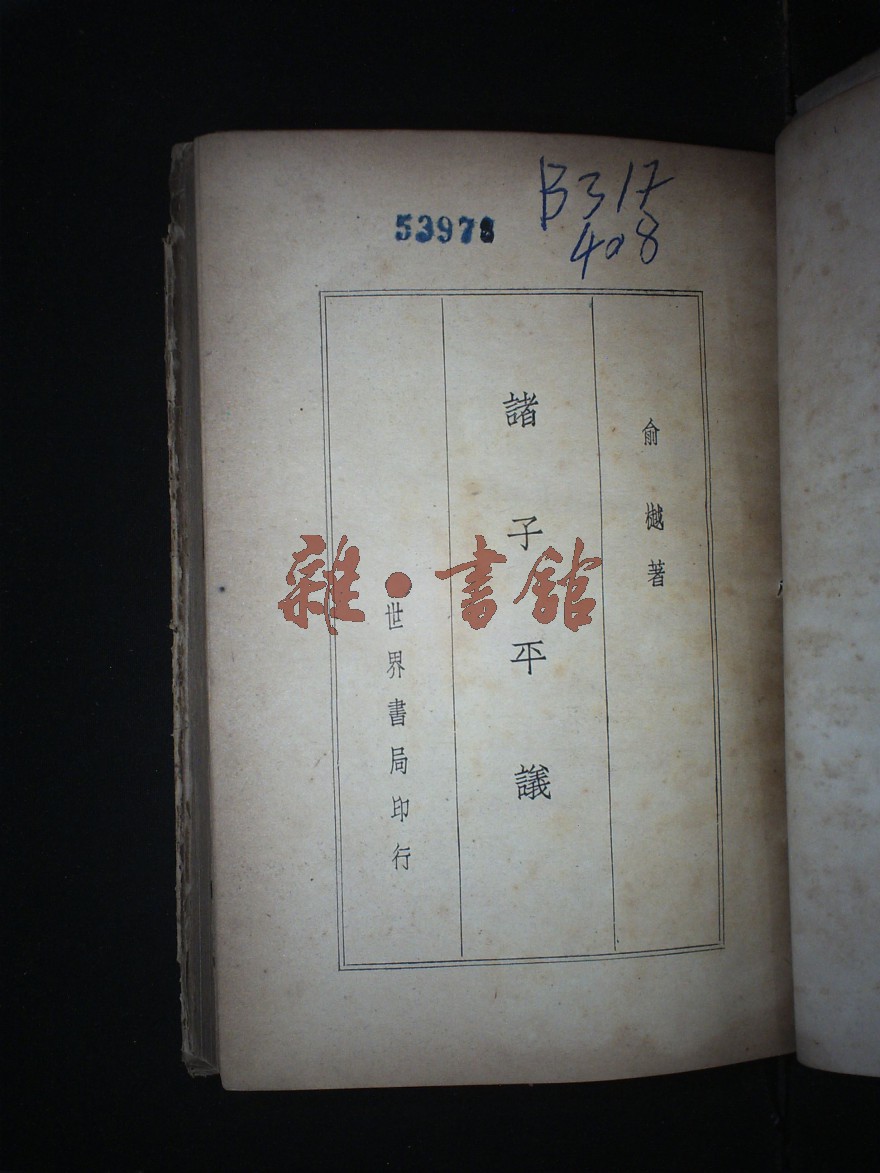 53978
B317
408
俞樾著
諸子平議
世界書局印行
雜·書館